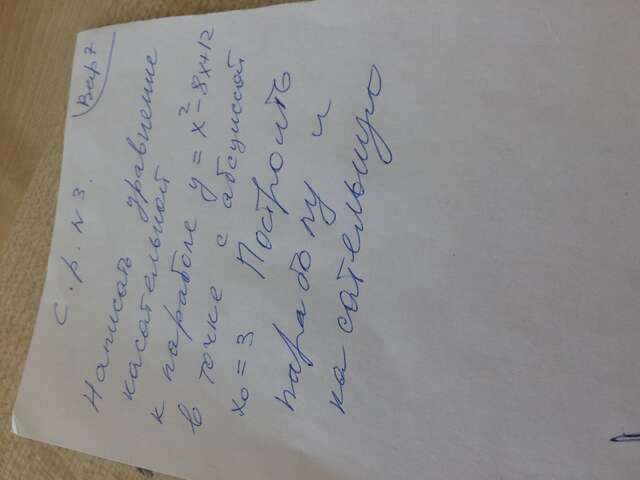 С. р. N 3.
Вар 7
Написать уравнение
касательной
к параболе y = x² - 8x + 12
в точке с абсциссой
x₀ = 3 Построить
параболу и
касательную